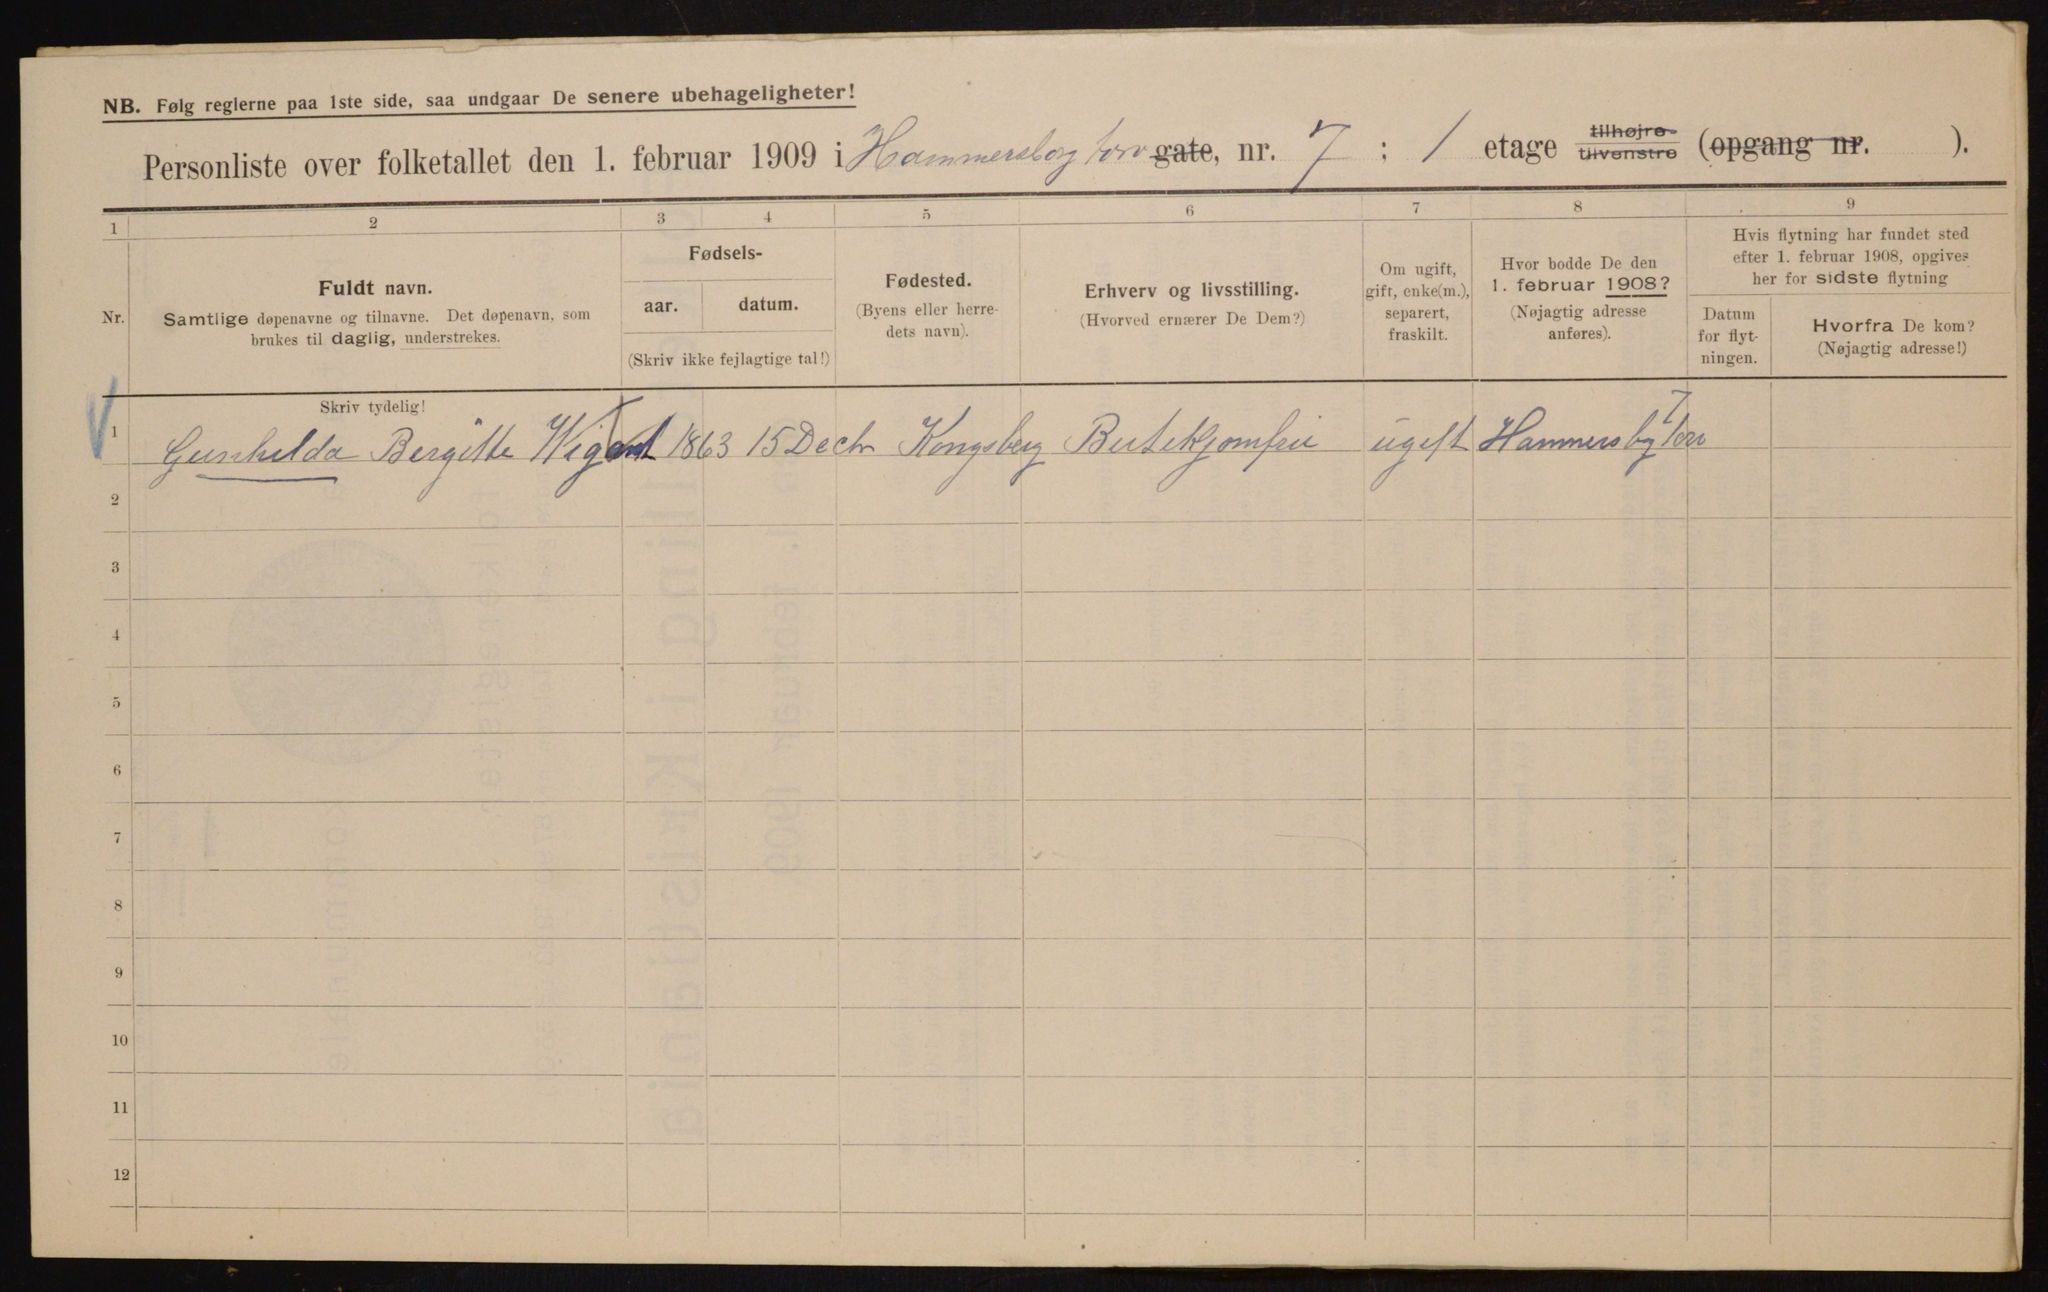 NB. Følg reglerne paa 1ste side, saa undgaar De senere ubehageligheter!
Personliste over folketallet den 1. februar 1909 i Hammersborg torv gate, nr. 7 : 1 etage tilhøjre tilvenstre (opgang nr. ).
1 2 3 4 5 6 7 8 9
Nr.
Fuldt navn.
Samtlige døpenavne og tilnavne. Det døpenavn, som
brukes til daglig, understrekes.
Skriv tydelig!
Fødsels-
aar. datum.
(Skriv ikke fejlagtige tal!)
Fødested.
(Byens eller herre-
dets navn).
Erhverv og livsstilling.
(Hvorved ernærer De Dem?)
Om ugift,
gift, enke(m.),
separert,
fraskilt.
Hvor bodde De den
1. februar 1908?
(Nøjagtig adresse
anføres).
Hvis flytning har fundet sted
efter 1. februar 1908, opgives
her for sidste flytning
Datum
for flyt-
ningen.
Hvorfra De kom?
(Nøjagtig adresse!)
1 Gunhilda Bergitte 1863 15 Decbr Kongsberg ugift Hammersbg Torv 7
2
3
4
5
6
7
8
9
10
11
12